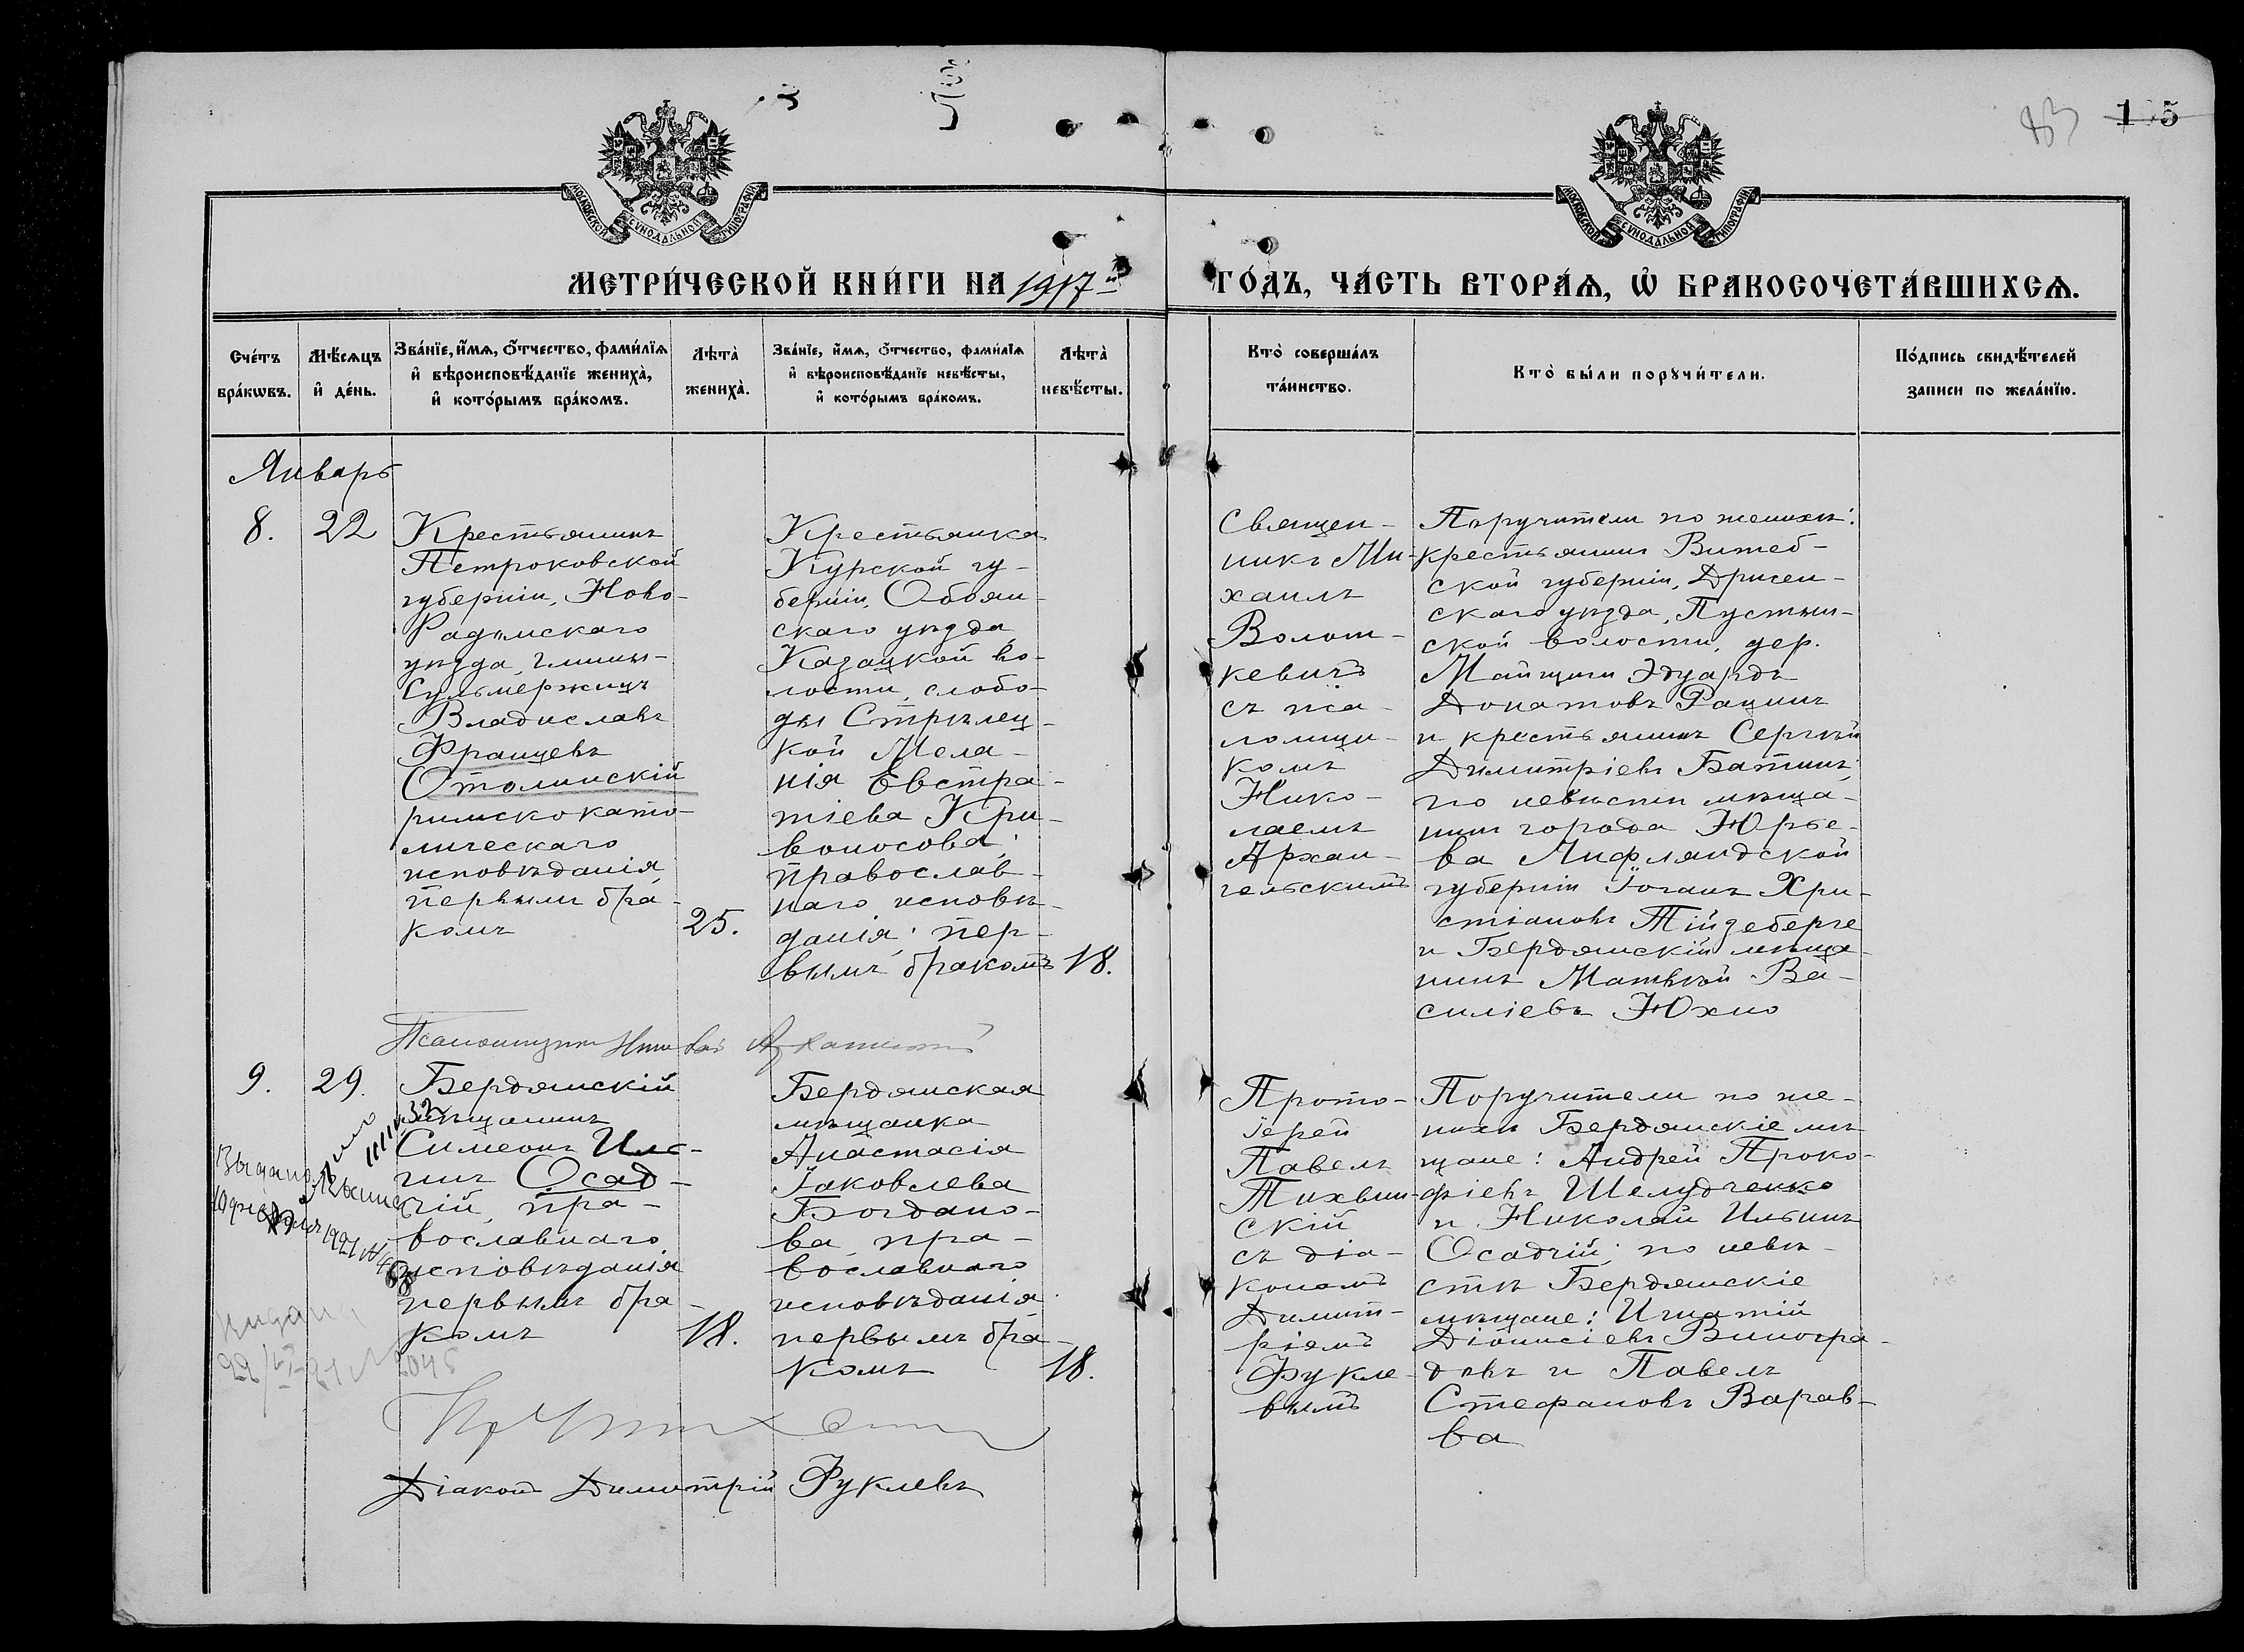 83
МОСКОВСКОЙ СѴНОДАЛЬНОЙ ТИПОГРАФІИ
МОСКОВСКОЙ СѴНОДАЛЬНОЙ ТИПОГРАФІИ
МЕТРИ́ЧЕСКОЙ КНИ́ГИ НА 1917 ГО́ДЪ, ЧА́СТЬ ВТОРА́Ѧ, Ѡ҆ БРАКОСОЧЕТА́ВШИХСѦ.
Сче́тъ
бра́кѡвъ.
Мѣ́сѧцъ
и҆ де́нь.
Зва́нїе, и҆́мѧ, ѻ҆́тчество, фами́лїѧ
и҆ вѣроисповѣ́данїе жениха̀,
и҆ кото́рымъ бра́комъ.
Лѣта̀
жениха̀.
Зва́нїе, и҆́мѧ, ѻ҆́тчество, фами́лїѧ
и҆ вѣроисповѣ́данїе невѣ́сты,
и҆ кото́рымъ бра́комъ.
Лѣта̀
невѣ́сты.
Кто̀ соверша́лъ
та́инство.
Кто̀ бы́ли порꙋчи́тели.
По́дпись свидѣ́телей
записи по жела́нїю.
Январь
8.
22
Крестьянинъ
Петроковской
губерніи, Ново-
Радомскаго
уѣзда, гмины-
Сульмержицъ
Владиславъ
Францевъ
Отолинскій
римскокато-
лическаго
исповѣданія
первымъ бра-
комъ
25.
Крестьянка
Курской гу-
берніи, Обоян-
скаго уѣзда
Казацкой во-
лости, слобо-
ды Стрѣлец-
кой Мела-
нія Евстра-
тіева Кри-
воносова;
православ-
наго исповѣ-
данія; пер-
вымъ бракомъ
18.
Священ-
никъ Ми-
хаилъ
Волот-
кевичъ
съ пса-
ломщи-
комъ
Нико-
лаемъ
Архан-
гельскимъ
Поручители по женихѣ:
крестьянинъ Витеб-
ской губерніи, Дрисен-
скаго уѣзда, Пустын-
ской волости, дер.
Эдуардъ
Донатовъ Рацинъ
и крестьянинъ Сергѣй
Димитріевъ Батинъ;
по невѣстѣ мѣща-
нинъ города Юрье-
ва Лифляндской
губерніи Іоганъ Хри-
стіановъ Тійдеберге
и Бердянскій мѣща-
нинъ Матвѣй Ва-
силіевъ Юхно
Псаломщикъ Николай Архангельскій
9.
29.
Бердянскій
мѣщанинъ
Симеонъ Иль-
инъ Осад-
чій, пра-
вославнаго
исповѣданія
первымъ бра-
комъ
18.
Бердянская
мѣщанка
Анастасія
Іаковлева
Богдано-
ва, пра-
вославнаго
исповѣданія
первымъ бра-
комъ
18.
Прото-
іерей
Павелъ
Тихвин-
скій
съ діа-
кономъ
Димит-
ріемъ
Фукле-
вымъ
Поручители по же-
нихѣ Бердянскіе мѣ-
щане: Андрей Проко-
фіевъ Шелудченко
и Николай Ильинъ
Осадчій; по невѣ-
стѣ Бердянскіе
мѣщане: Игнатій
Діонисіевъ Виногра-
довъ и Павелъ
Стефановъ Варав-
ва
Діаконъ Димитрій Фуклевъ